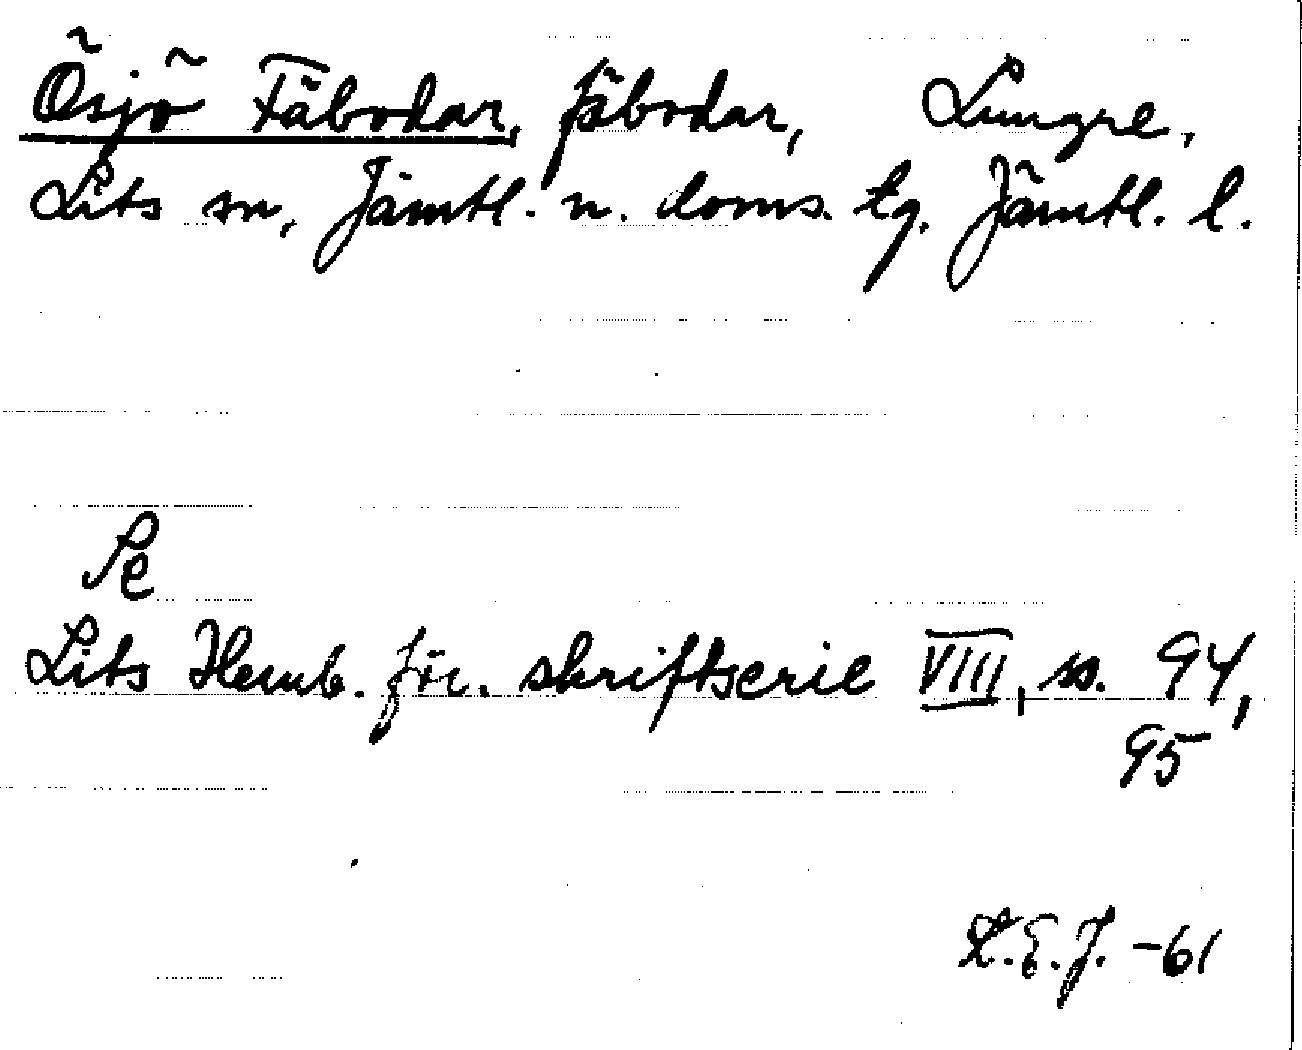 Ösjö Fäbodar, fäbodar, Lungre,
Lits sn, Jämtl. n. doms. tg. Jämtl. l.
Se
Lits Hemb. för. skriftserie VIII, ss. 94,
95
K.E.J. -61